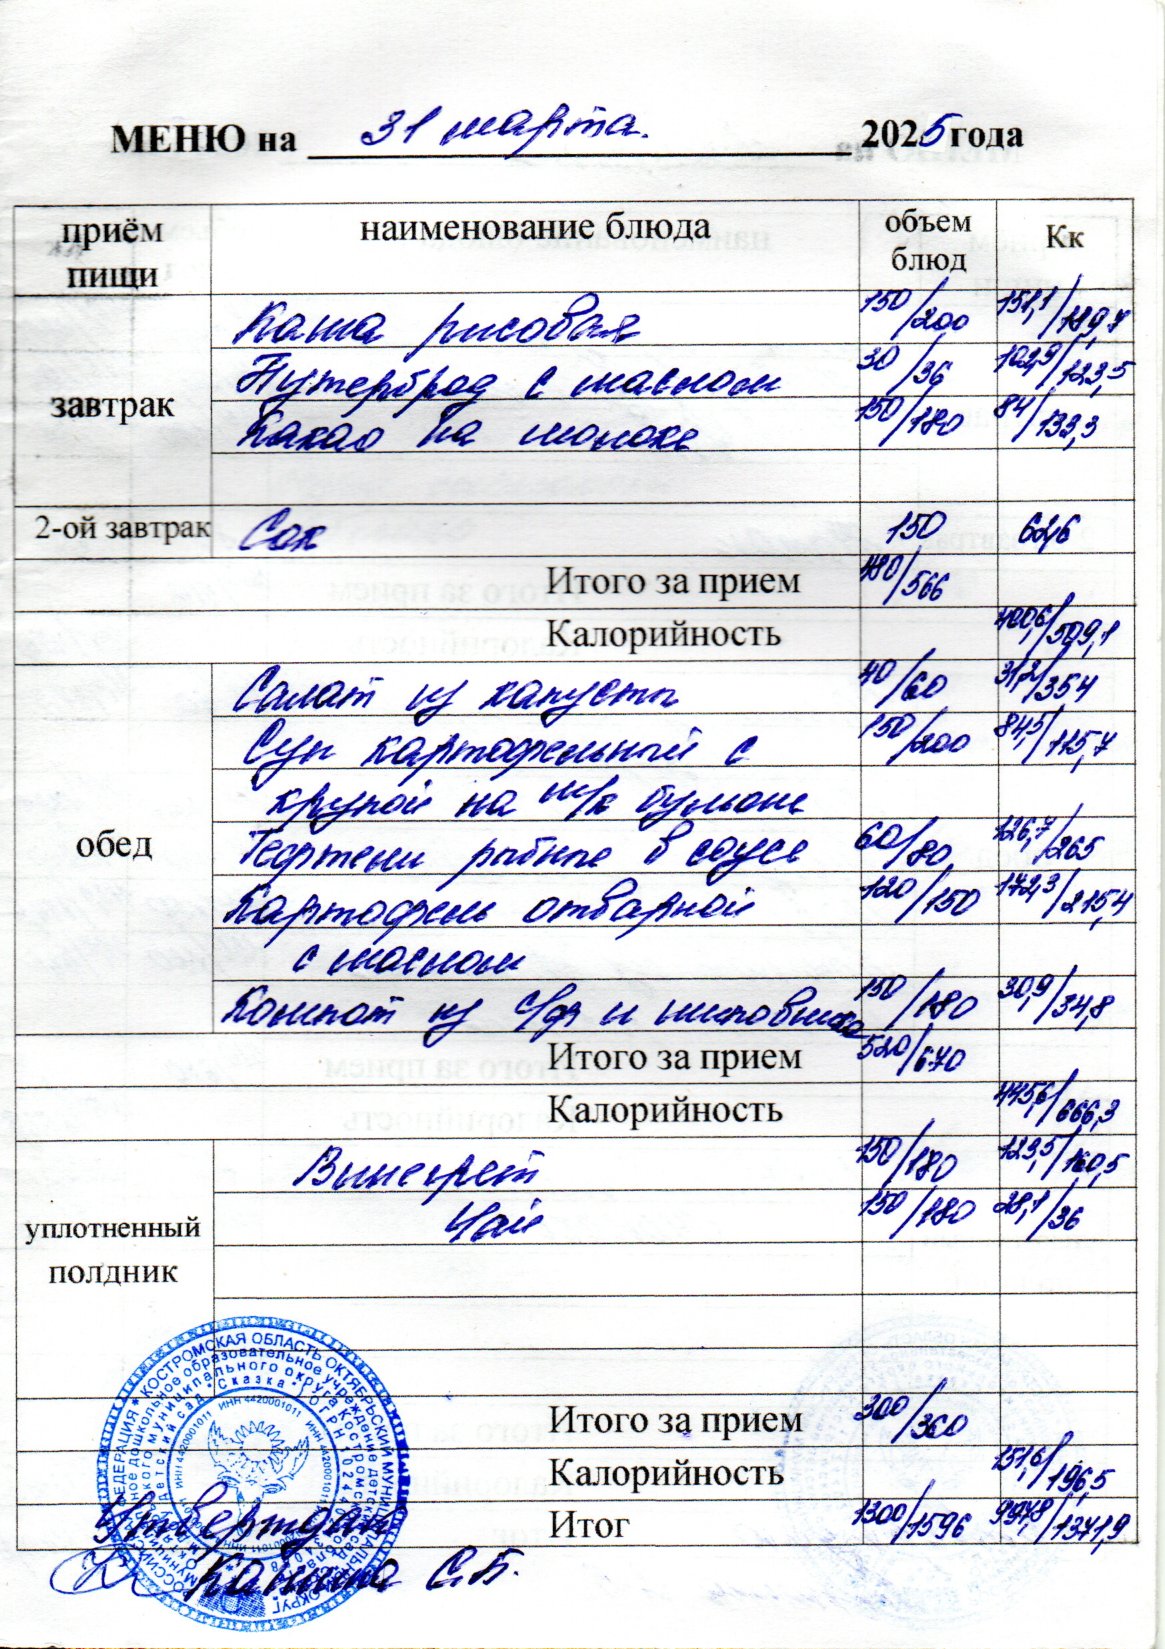 МЕНЮ на 31 марта. 2025 года
приём пищи наименование блюда объем блюд Кк
завтрак
Каша рисовая 150/200 151,1/189,7
Бутерброд с маслом 30/36 102,9/123,5
Какао на молоке 150/180 84/133,3
2-ой завтрак Сок 150 62,6
Итого за прием 480/566
Калорийность 400,6/509,1
обед
Салат из капусты 40/60 31,2/35,4
Суп картофельный с 150/200 84,5/115,7
крупой на м/к бульоне
Тефтели рыбные в соусе 60/80 126,7/265
Картофель отварной 120/150 172,3/215,4
с маслом
Компот из с/ф и шиповника 150/180 30,9/34,8
Итого за прием 520/670
Калорийность 445,6/666,3
уплотненный полдник
Винегрет 150/180 123,5/160,5
Чай 150/180 28,1/36
Итого за прием 300/360
Калорийность 151,6/196,5
Итог 1300/1596 997,8/1371,9
КОСТРОМСКАЯ ОБЛАСТЬ ОКТЯБРЬСКИЙ МУНИЦИПАЛЬНЫЙ ОКРУГ
дошкольное образовательное учреждение детский сад
муниципального округа Костромской области
Детский сад "Сказка"
ИНН 4420001011
Утверждаю
Кабшна С.Б.